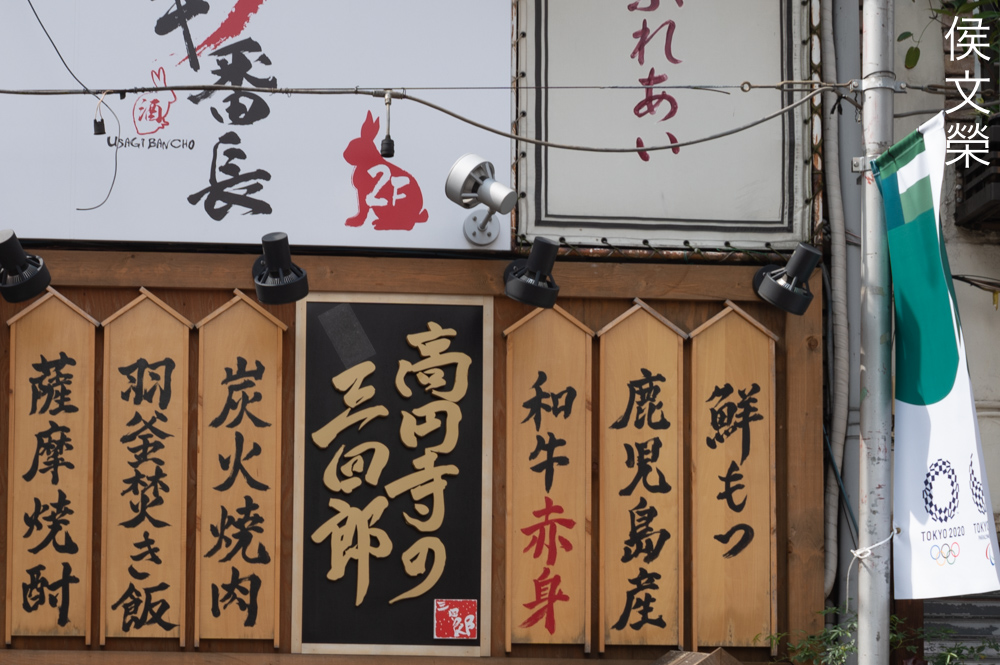 番長
酒
USAGI BANCHO
2F
ふれあい
侯文榮
鮮もつ
鹿児島産
和牛赤身
高円寺の
三四郎
三四郎
炭火焼肉
羽釜焚き飯
薩摩焼酎
TOKYO 2020